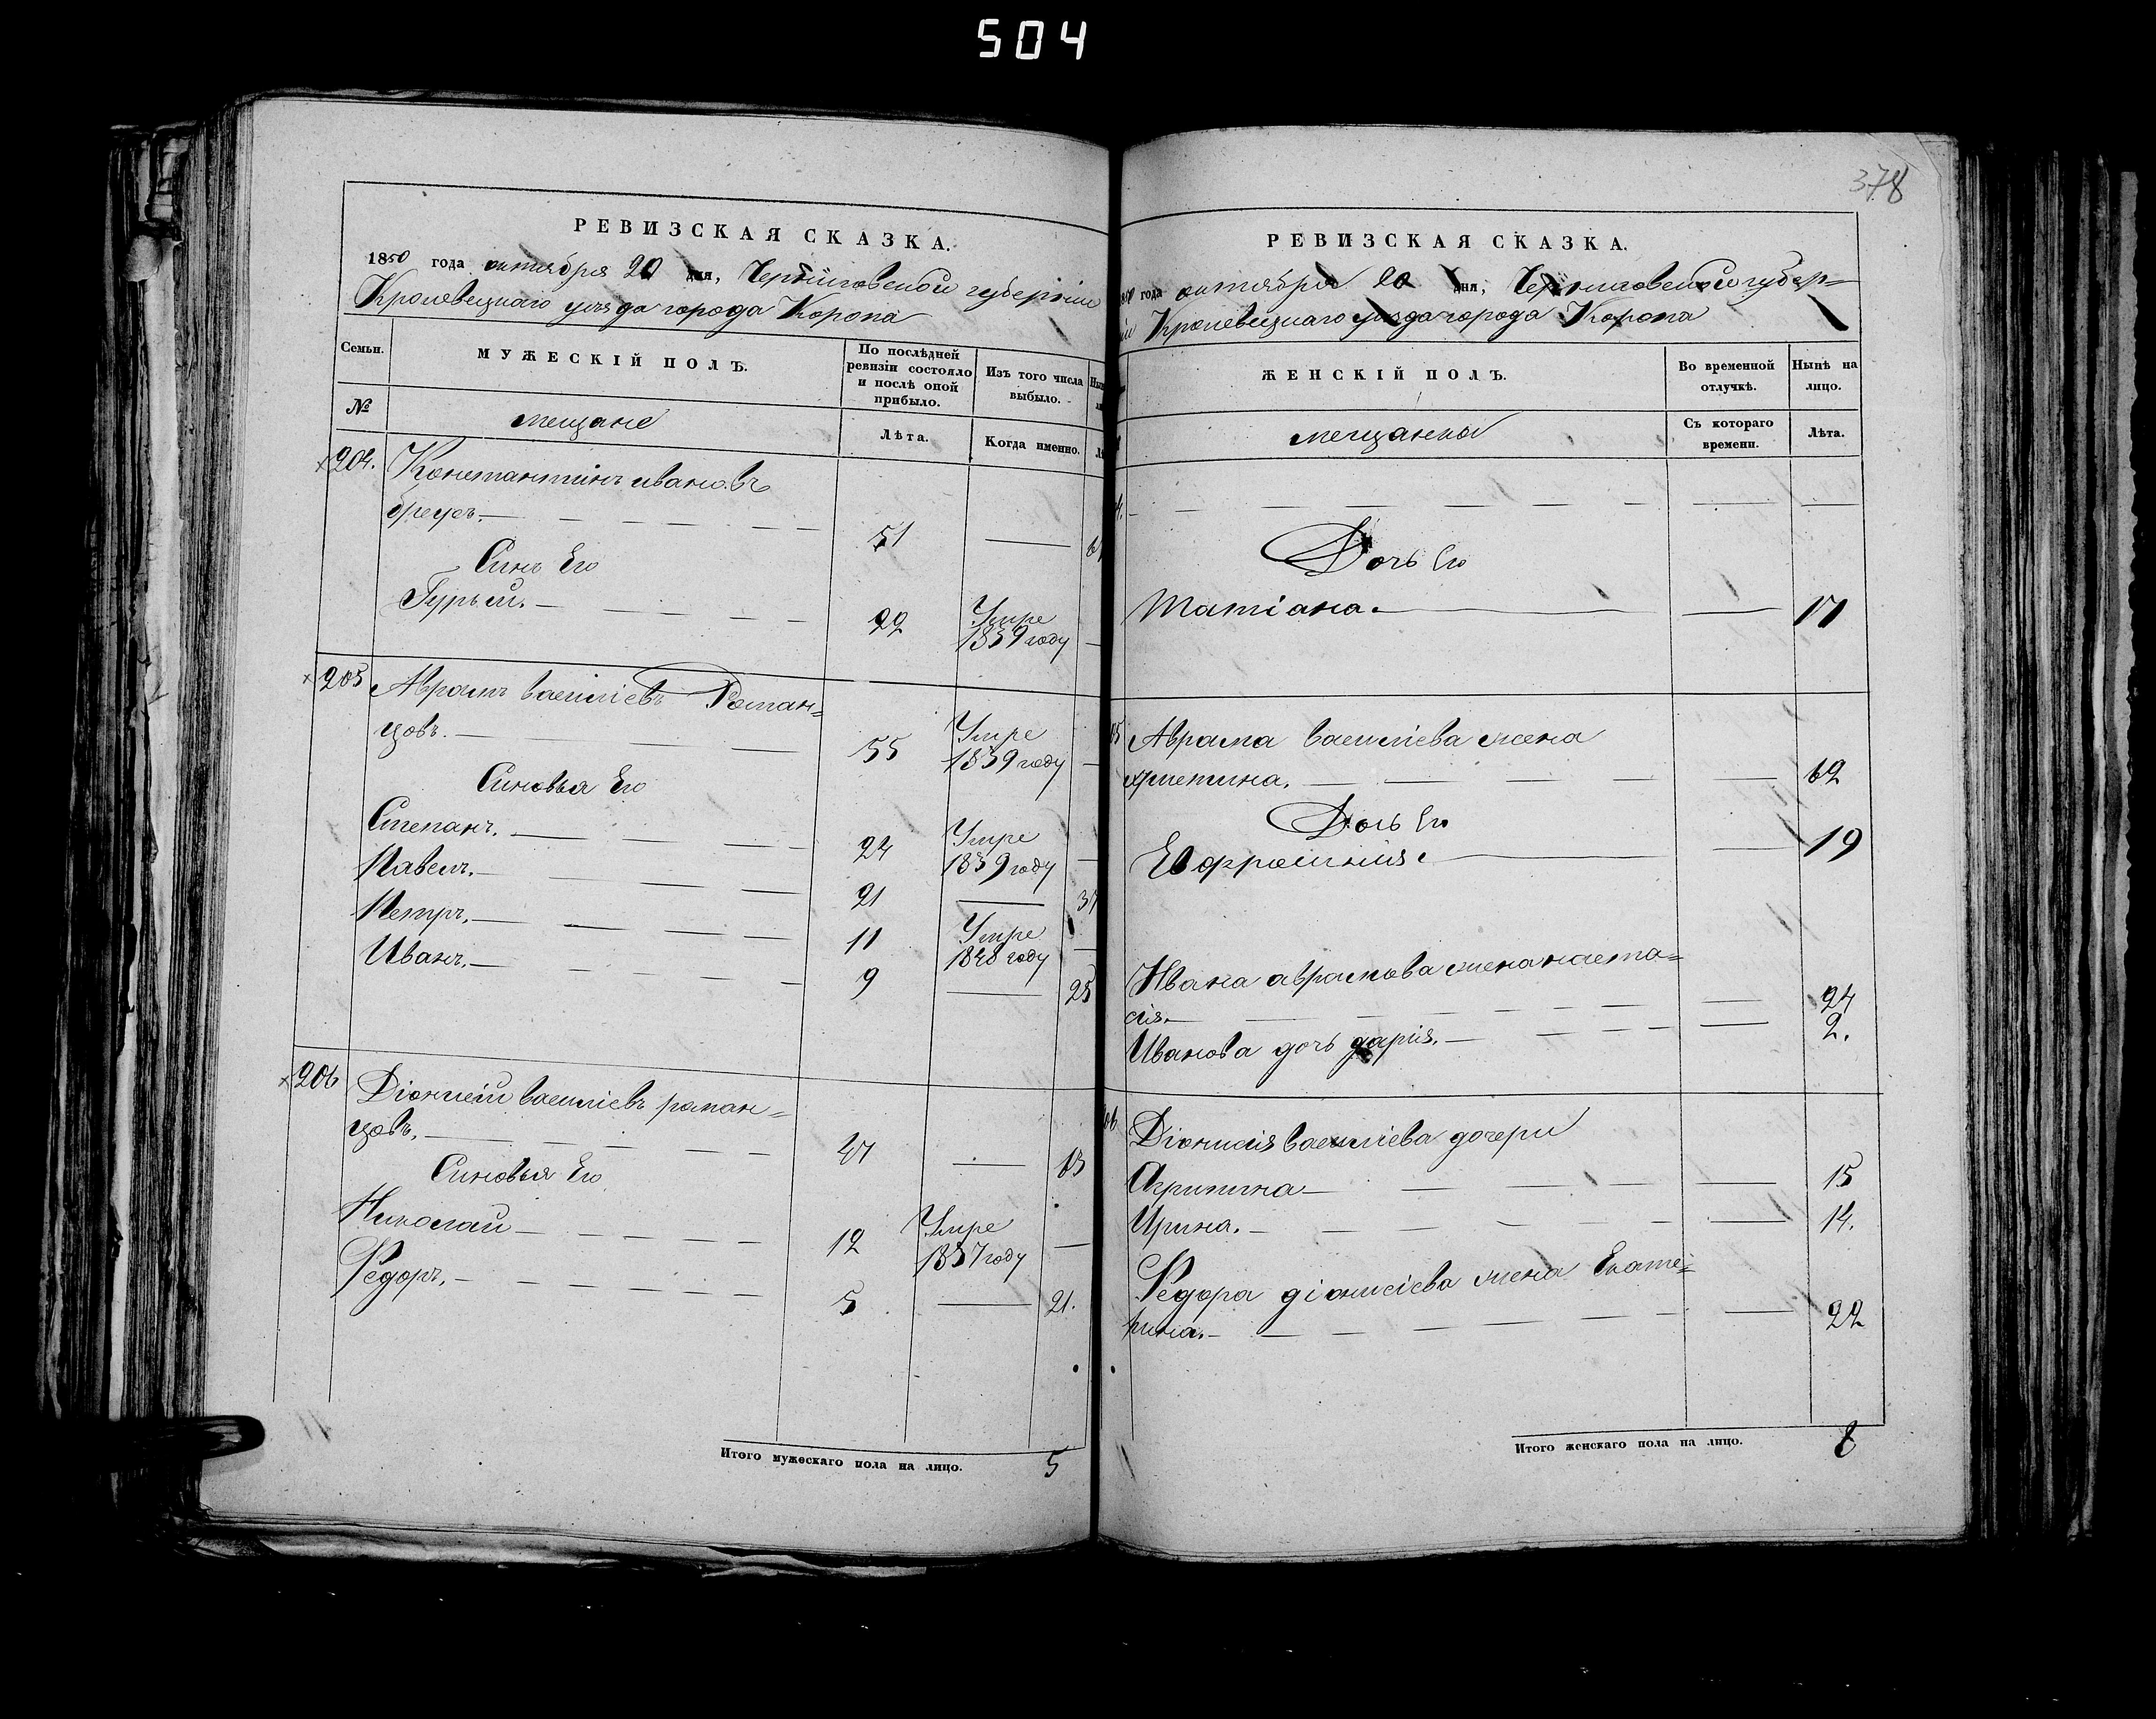 504
РЕВИЗСКАЯ СКАЗКА.
1850 года октября 20 дня, Черниговской губерніи
Кролевецкаго уѣзда города Коропа
Семьи.
МУЖЕСКІЙ ПОЛЪ.
По послѣдней ревизіи состояло и послѣ оной прибыло.
Изъ того числа выбыло.
№
мещане
Лѣта.
Когда именно.
204. Константинъ ивановъ
51 — 61
Синъ Его
Гурьий. — 22 Умре 1839 году —
205 Аврамъ василіевъ Роман=
цовъ. — 55 Умре 1839 году —
Синовья Его
Степанъ. — 24 Умре 1839 году —
Павелъ. — 21 — 37
Петръ. — 11 Умре 1848 году —
Иванъ. — 9 — 25
206 Діонисій василіевъ роман=
цовъ. — 47 — 63
Синовья Его
Николай — 12 Умре 1837 году —
Федоръ. — 5 — 21.
Итого мужескаго пола на лицо. 5
378
РЕВИЗСКАЯ СКАЗКА.
года октября 20 дня, Черниговской губер=
іи Кролевецкаго уезда города Коропа
ЖЕНСКІЙ ПОЛЪ.
Во временной отлучкѣ.
Нынѣ на лицо.
мещанки
Съ котораго времени.
Лѣта.
Дочь Его
Татіана. — — 17
Аврама василіева жена
христина. — — 62
Дочь Его
Евфросинія. — — 19
Ивана аврамова жена наста=
сія. — — 24
Иванова дочь дарія. — — 2.
Діонисія василіева дочери
Агрипина — — 15
Ирина. — — 14.
Федора діонисіева жена Екате=
рина. — — 22
Итого женскаго пола на лицо. 8